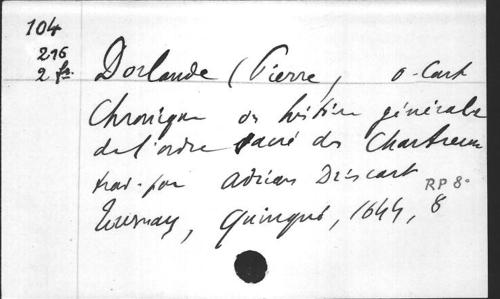 104
216
2 fr.
Dorlande (Pierre), o. Cart
Chronique ou histoire générale
de l'ordre sacré des Chartreux
trad. par Adrien Driscart
RP 8°
Tournay, Quinqué, 1644, 8